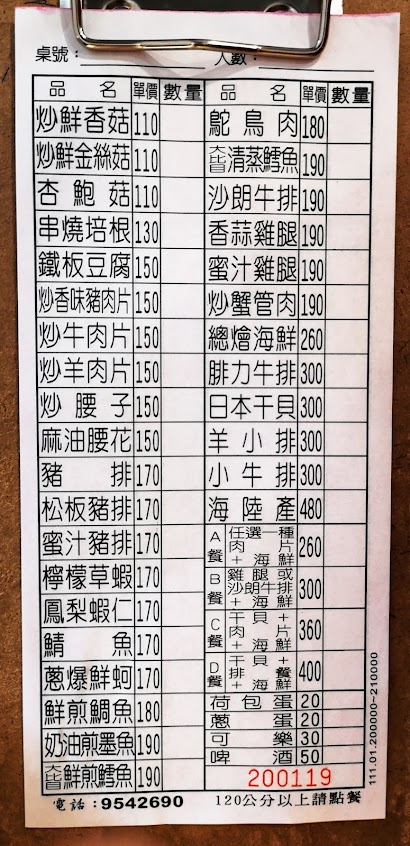 桌號：
人數：
品名 單價 數量 品名 單價 數量
炒鮮香菇 110 鴕鳥肉 180
炒鮮金絲菇 110 大比目清蒸鱈魚 190
杏鮑菇 110 沙朗牛排 190
串燒培根 130 香蒜雞腿 190
鐵板豆腐 150 蜜汁雞腿 190
炒香味豬肉片 150 炒蟹管肉 190
炒牛肉片 150 總燴海鮮 260
炒羊肉片 150 腓力牛排 300
炒腰子 150 日本干貝 300
麻油腰花 150 羊小排 300
豬排 170 小牛排 300
松板豬排 170 海陸產 480
蜜汁豬排 170 A餐 任選一種肉片+海鮮 260
檸檬草蝦 170 B餐 雞腿或沙朗牛排+海鮮 300
鳳梨蝦仁 170 C餐 干貝+肉片+海鮮 360
鯖魚 170 D餐 干貝+排餐+海鮮 400
蔥爆鮮蚵 170 荷包蛋 20
鮮煎鯛魚 180 蔥蛋 20
奶油煎墨魚 190 可樂 30
鮮煎鱈魚 190 啤酒 50
200119
電話：9542690 120公分以上請點餐
111.01.200000~210000